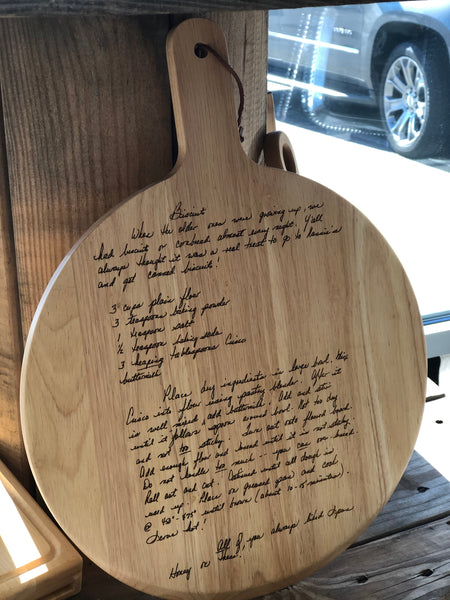 Biscuit
When the older ones were growing up, we
had biscuit or cornbread almost every night. Y'all
always thought it was a real treat to go to
and get canned biscuit!
3 cups plain flour
3 teaspoons baking powder
1 teaspoon salt
½ teaspoon baking soda
3 heaping tablespoons Crisco
buttermilk
Place dry ingredients in large bowl. Mix
Crisco into flour using pastry blender. After it
is well mixed, add buttermilk. Add and stir
until it follows spoon around bowl. Not to dry
and not too sticky. Turn out onto floured board.
Add enough flour and knead until it is not sticky.
Do not handle too much -- you can over knead.
Roll out and cut. Continue until all dough is
used up. Place on greased pan and cook
@ 450°-475° until brown (about 10-15 minutes).
Serve hot!
Honey on them! All of you always liked